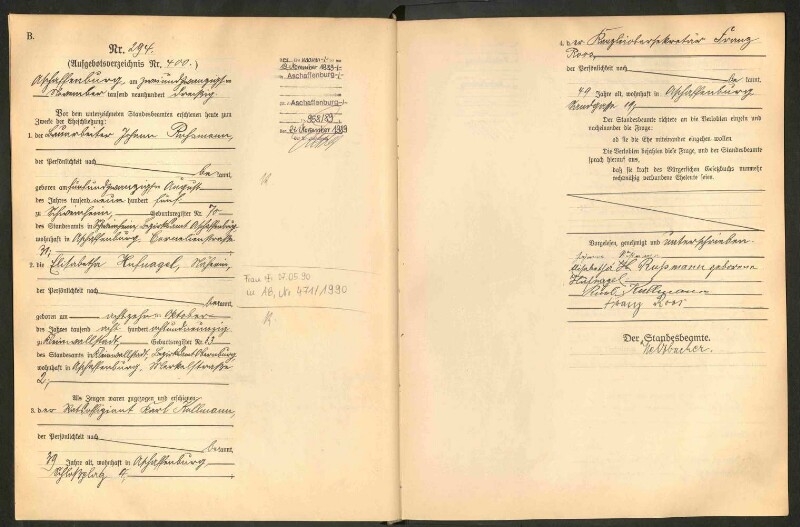 B.
Nr. 294.
(Aufgebotsverzeichnis Nr. 400.)
Aschaffenburg, am zweiundzwanzigsten
November tausend neunhundert dreißig
Vor dem unterzeichneten Standesbeamten erschienen heute zum
Zwecke der Eheschließung:
1. der Bauarbeiter Johann Rußmann,
der Persönlichkeit nach
be kannt,
geboren am fünfundzwanzigsten August
des Jahres tausend neun hundert fünf
zu Schweinheim, Geburtsregister Nr. 70
des Standesamts in Schweinheim, Bezirksamt Aschaffenburg
wohnhaft in Aschaffenburg, Cornelienstraße
31;
2. die Elisabetha Hufnagel, Näherin,
der Persönlichkeit nach
be kannt,
geboren am achtzehnten Oktober
des Jahres tausend acht hundert achtundneunzig
zu Kleinwallstadt, Geburtsregister Nr. 53
des Standesamts in Kleinwallstadt, Bezirksamt Obernburg
wohnhaft in Aschaffenburg, Merkelstraße
2;
Als Zeugen waren zugezogen und erschienen:
3. der Karl Kullmann,
der Persönlichkeit nach
be kannt,
39 Jahre alt, wohnhaft in Aschaffenburg
Schloßplatz 4,
Aschaffenburg
Aschaffenburg
958/89
21. November 1989
Frau † 27.05.90
in AB, Nr. 471/1990
4. der Kanzleiobersekretär Franz
Roos,
der Persönlichkeit nach
be kannt,
49 Jahre alt, wohnhaft in Aschaffenburg
Sandgasse
Der Standesbeamte richtete an die Verlobten einzeln und
nacheinander die Frage:
ob sie die Ehe miteinander eingehen wollen.
Die Verlobten bejahten diese Frage, und der Standesbeamte
sprach hierauf aus,
daß sie kraft des Bürgerlichen Gesetzbuchs nunmehr
rechtmäßig verbundene Eheleute seien.
Vorgelesen, genehmigt und unterschrieben
Elisabetha Rußmann geborene
Hufnagel
Karl Kullmann
Franz Roos
Der Standesbeamte.